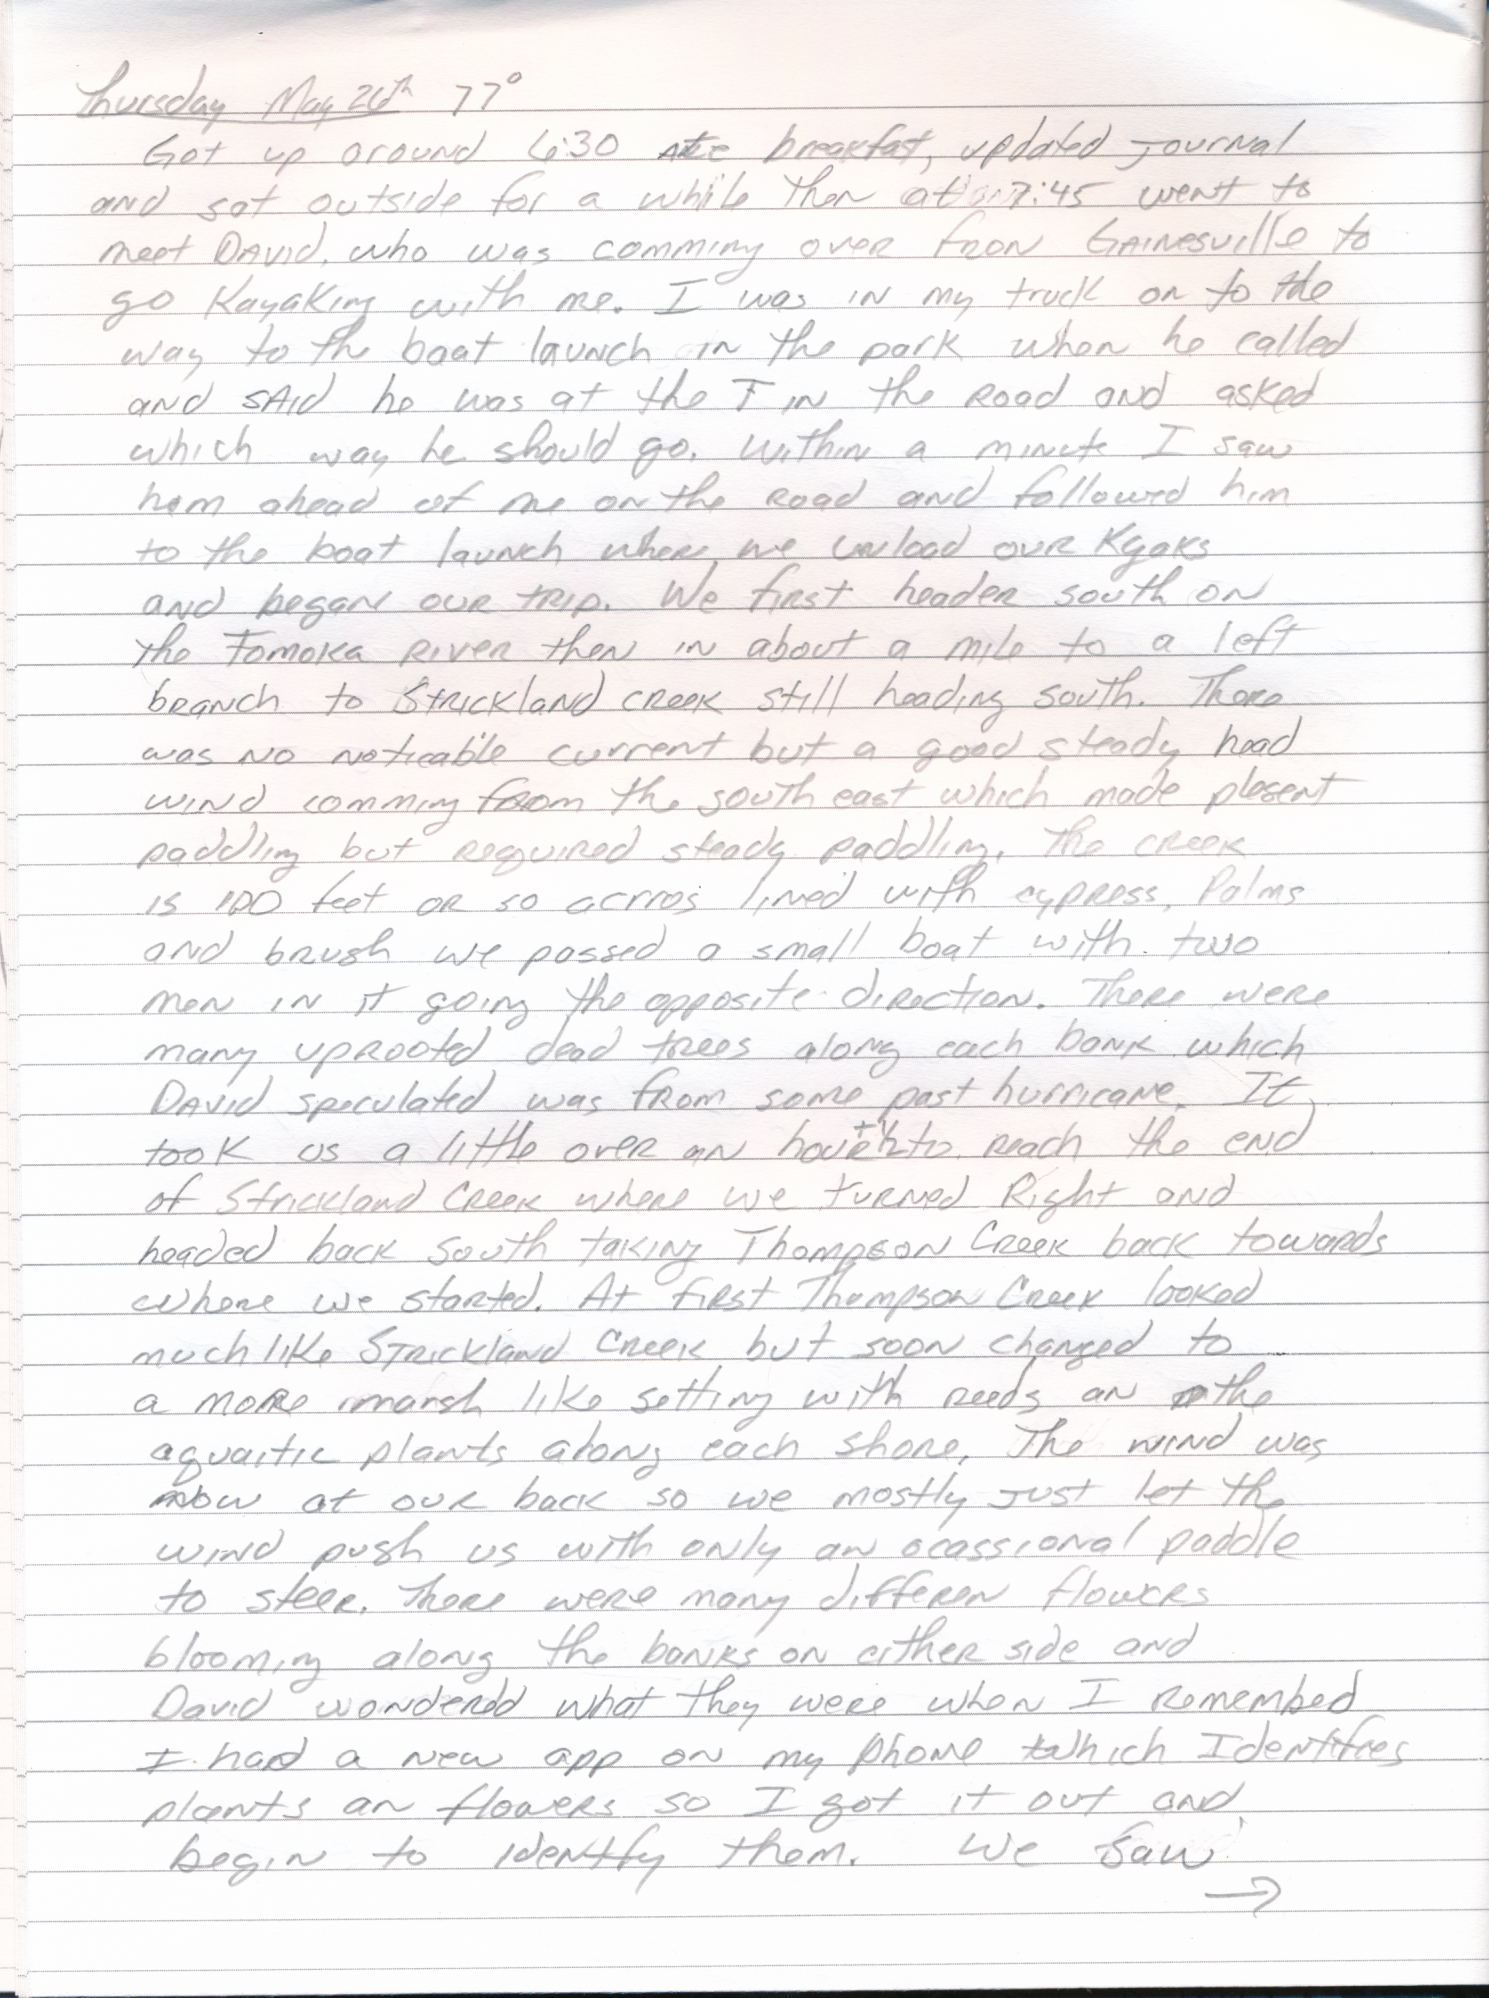 Thursday May 26th 77°
Got up around 6:30 Ate breakfast, updated Journal
and sat outside for a while then at 7:45 went to
meet DAVID, who was comming over from GAINESVILLE to
go KayaKing with me. I was in my truck on to the
way to the boat launch in the park when he called
and SAId he was at the T IN the Road and asked
which way he should go. Within a minute I saw
him ahead of me on the Road and followed him
to the boat launch where we unload our Kyaks
and began our TRIP. We first header south on
the Tomoka River then in about a mile to a left
branch to Strickland Creek still heading south. There
was no noticable current but a good steady head
wind comming from the south east which made plesent
paddling but required steady paddling. The creek
is 100 feet or so acrros lined with cypress, Palms
and brush we passed a small boat with two
men in it going the opposite direction. There were
many uprooted dead trees along each bank which
DAVID speculated was from some past hurricane. It
took us a little over an hour to reach the end
of Strickland Creek where we turned Right and
headed back south taking Thompson Creek back towards
where we started. At first Thompson Creek looked
much like Strickland Creek but soon changed to
a more marsh like setting with reeds an othe
aquaitic plants along each shore. The wind was
now at our back so we mostly Just let the
wind push us with only an ocassional paddle
to steer. There were many differen flowers
blooming along the banks on either side and
David wondered what they were when I Remembed
I had a new app on my phone which Identifies
plants an flowers so I got it out and
begin to identfy them. We saw
→